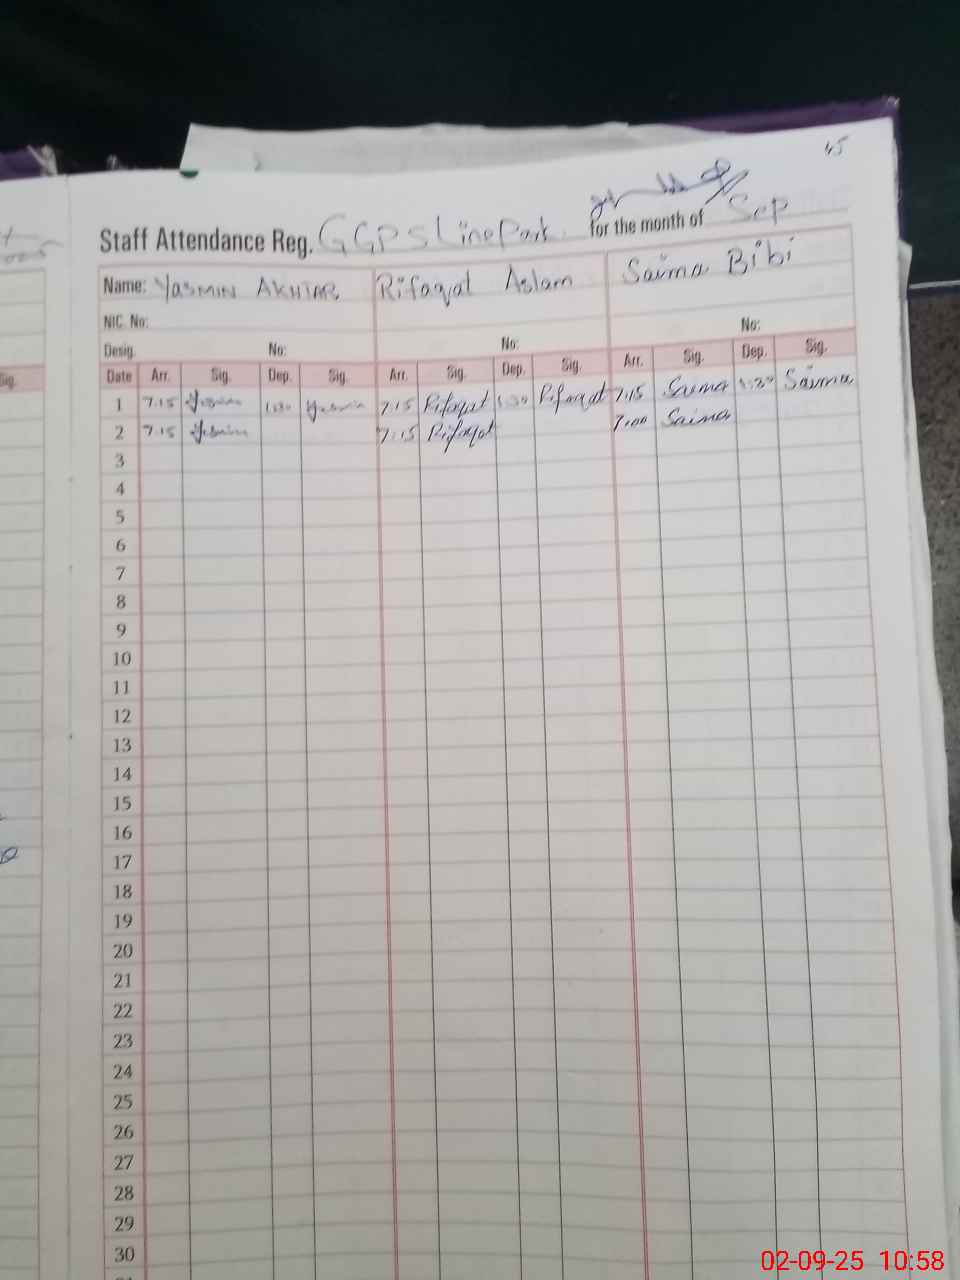 45
Staff Attendance Reg. GGPS Line Park for the month of Sep
Name: YASMIN AKHTAR Rifaqat Aslam Saima Bibi
NIC. No:
Desig. No: No: No:
Date Arr. Sig. Dep. Sig. Arr. Sig. Dep. Sig. Arr. Sig. Dep. Sig.
1 7.15 Yasmin 1:30 Yasmin 7:15 Rifaqat 1:30 Rifaqat 7:15 Saima 1:30 Saima
2 7.15 Yasmin 7:15 Rifaqat 7:00 Saima
3
4
5
6
7
8
9
10
11
12
13
14
15
16
17
18
19
20
21
22
23
24
25
26
27
28
29
30
02-09-25 10:58